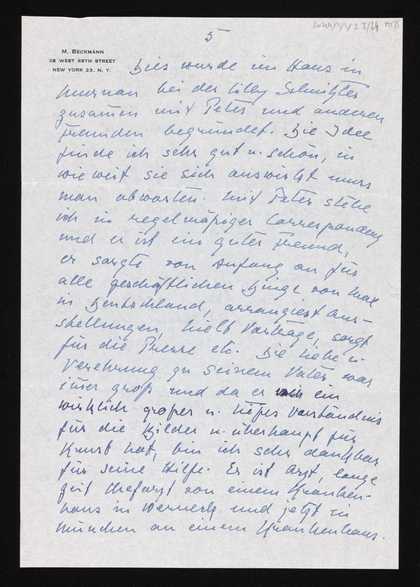 5
M. BECKMANN
38 WEST 69TH STREET
NEW YORK 23, N. Y.
Dies wurde im Haus in
Murnau bei der Lilly Schnitzler
zusammen mit Peter und anderen
Freunden begründet. Die Idee
finde ich sehr gut u. schön, in
wie weit sie sich auswirkt muss
man abwarten. Mit Peter stehe
ich in regelmäßiger Correspondenz
und er ist ein guter Freund,
er sorgte von Anfang an für
alle geschäftlichen Dinge von Max
in Deutschland, arrangiert Aus-
stellungen, hielt Vorträge, sorgt
für die Presse etc. Die Liebe u.
Verehrung zu seinem Vater war
immer groß und da er ein
wirklich großes u. tiefes Verständnis
für die Bilder u. überhaupt für
Kunst hat, bin ich sehr dankbar
für seine Hilfe. Er ist Arzt, lange
Zeit Chefarzt von einem Kranken-
haus in Werneck und jetzt in
München an einem Krankenhaus.